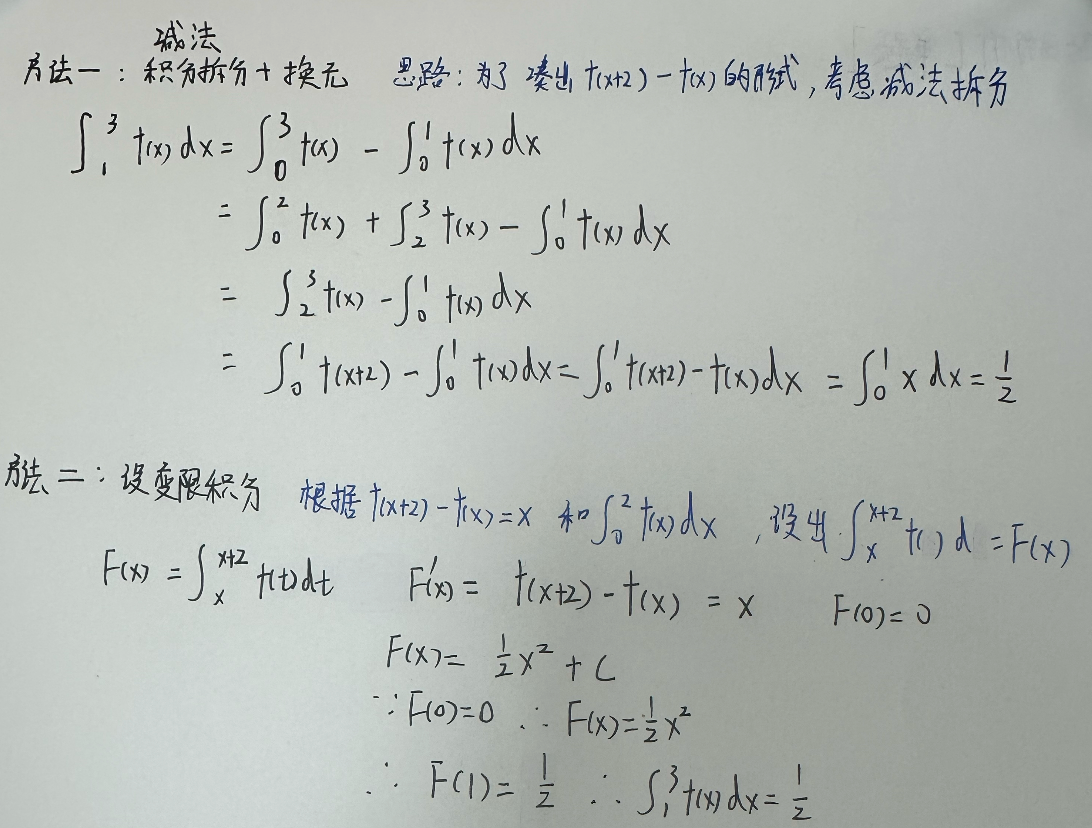 减法
方法一：积分拆分+换元 思路：为了凑出 f(x+2)-f(x)的形式,考虑减法拆分
∫₁³ f(x) dx = ∫₀³ f(x) - ∫₀¹ f(x) dx
= ∫₀² f(x) + ∫₂³ f(x) - ∫₀¹ f(x) dx
= ∫₂³ f(x) - ∫₀¹ f(x) dx
= ∫₀¹ f(x+2) - ∫₀¹ f(x) dx = ∫₀¹ f(x+2) - f(x) dx = ∫₀¹ x dx = 1/2
方法二：设变限积分 根据 f(x+2)-f(x)=x 和 ∫₀² f(x) dx ,设出 ∫ₓˣ⁺² f( ) d = F(x)
F(x) = ∫ₓˣ⁺² f(t) dt F'(x) = f(x+2) - f(x) = x F(0)=0
F(x) = 1/2 x² + C
∵ F(0)=0 ∴ F(x)=1/2 x²
∴ F(1) = 1/2 ∴ ∫₁³ f(x) dx = 1/2